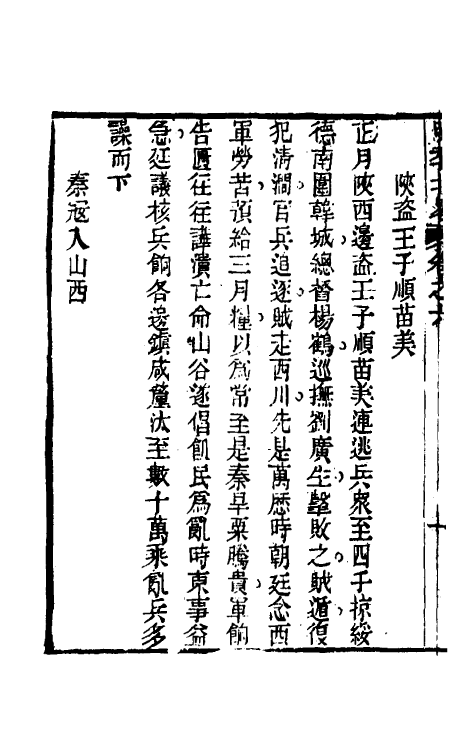 陝盗王子順苗美
正月陝西邊盗王子順苗美連逃兵衆至四千掠綏
德南圍韓城總督楊鶴巡撫劉廣生擊敗之賊遁復
犯清澗官兵追逐賊走西川先是萬歷時朝廷念西
軍勞苦預給三月糧以爲常至是秦旱粟騰貴軍餉
告匱往往譁潰亡命山谷遂倡飢民爲亂時東事益
急廷議核兵餉各邊鎮咸釐汰至數十萬乘亂兵多
譟而下
秦寇入山西